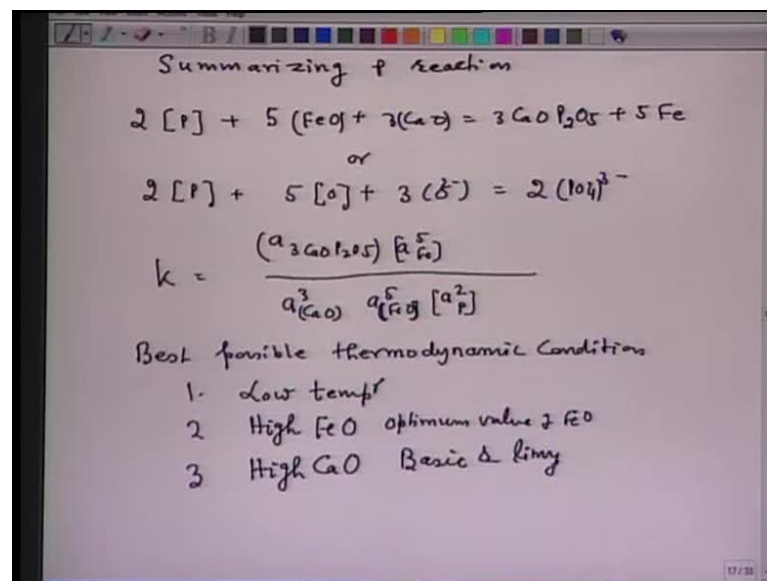 Summarizing P reaction
2 [P] + 5 (FeO) + 3(CaO) = 3 CaO P2O5 + 5 Fe
or
2 [P] + 5 [O] + 3 (O2-) = 2 (PO4)3-
k = (a 3CaOP2O5) [a5Fe]
a3(CaO) a5(FeO) [a2P]
Best possible thermodynamic Condition
1. Low tempr
2 High FeO optimum value of FeO
3 High CaO Basic & limy
17/33